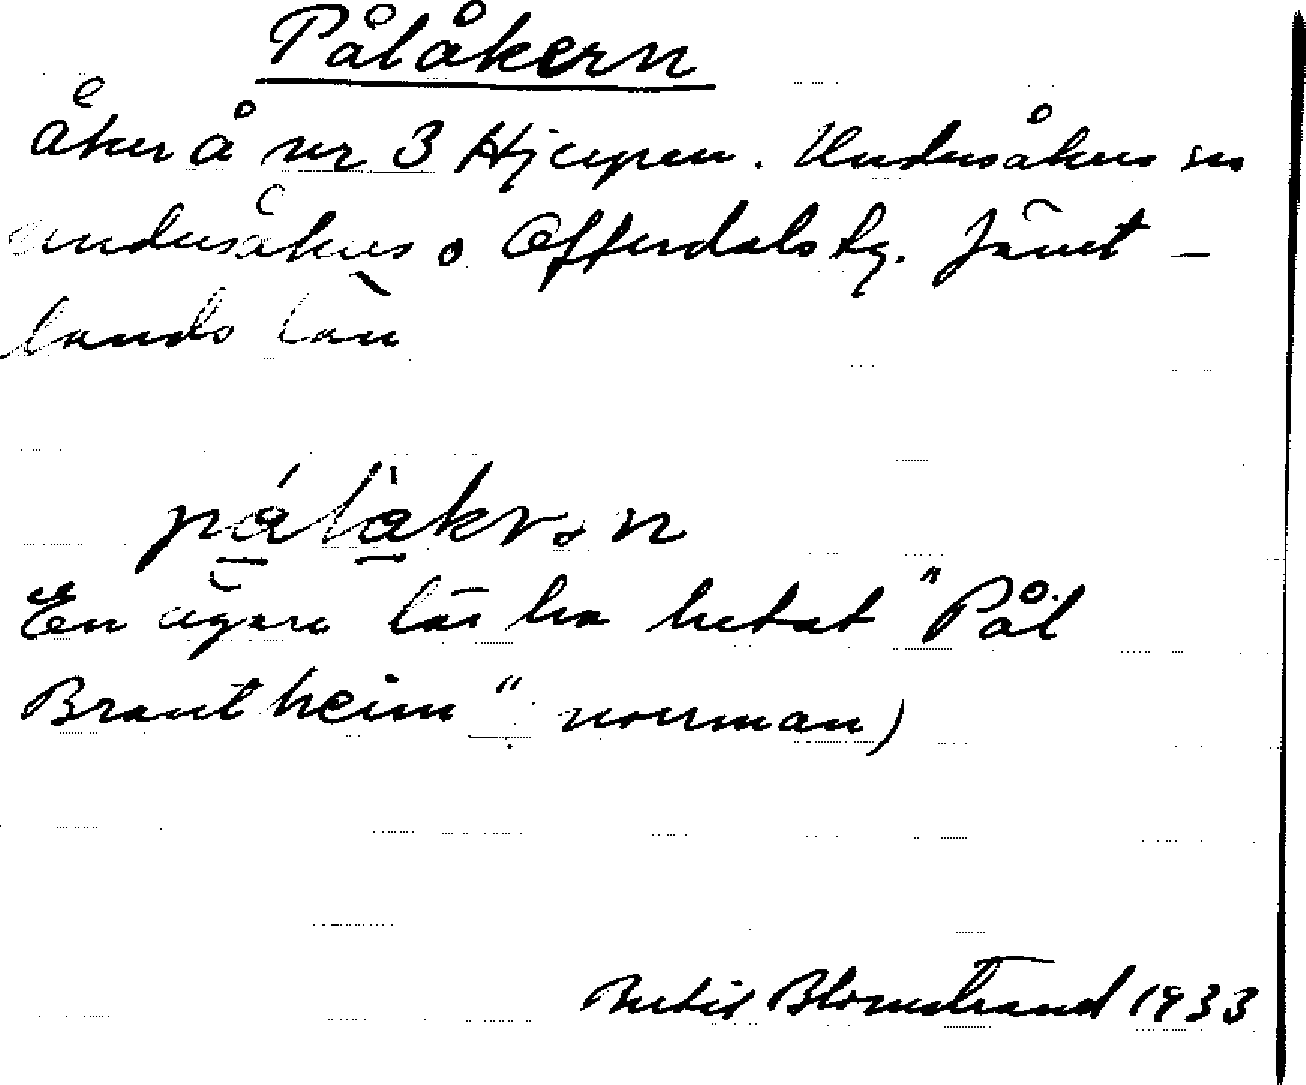 Pålåkern
åker å nr 3 Hjerpen. Undersåkers sn
undersåkers o Offerdals tg. Jämt-
lands län
pálàkrₒn
En ägare lär ha hetat "Pål
Brautheim" norrman)
Bertil Blomstrand 1933